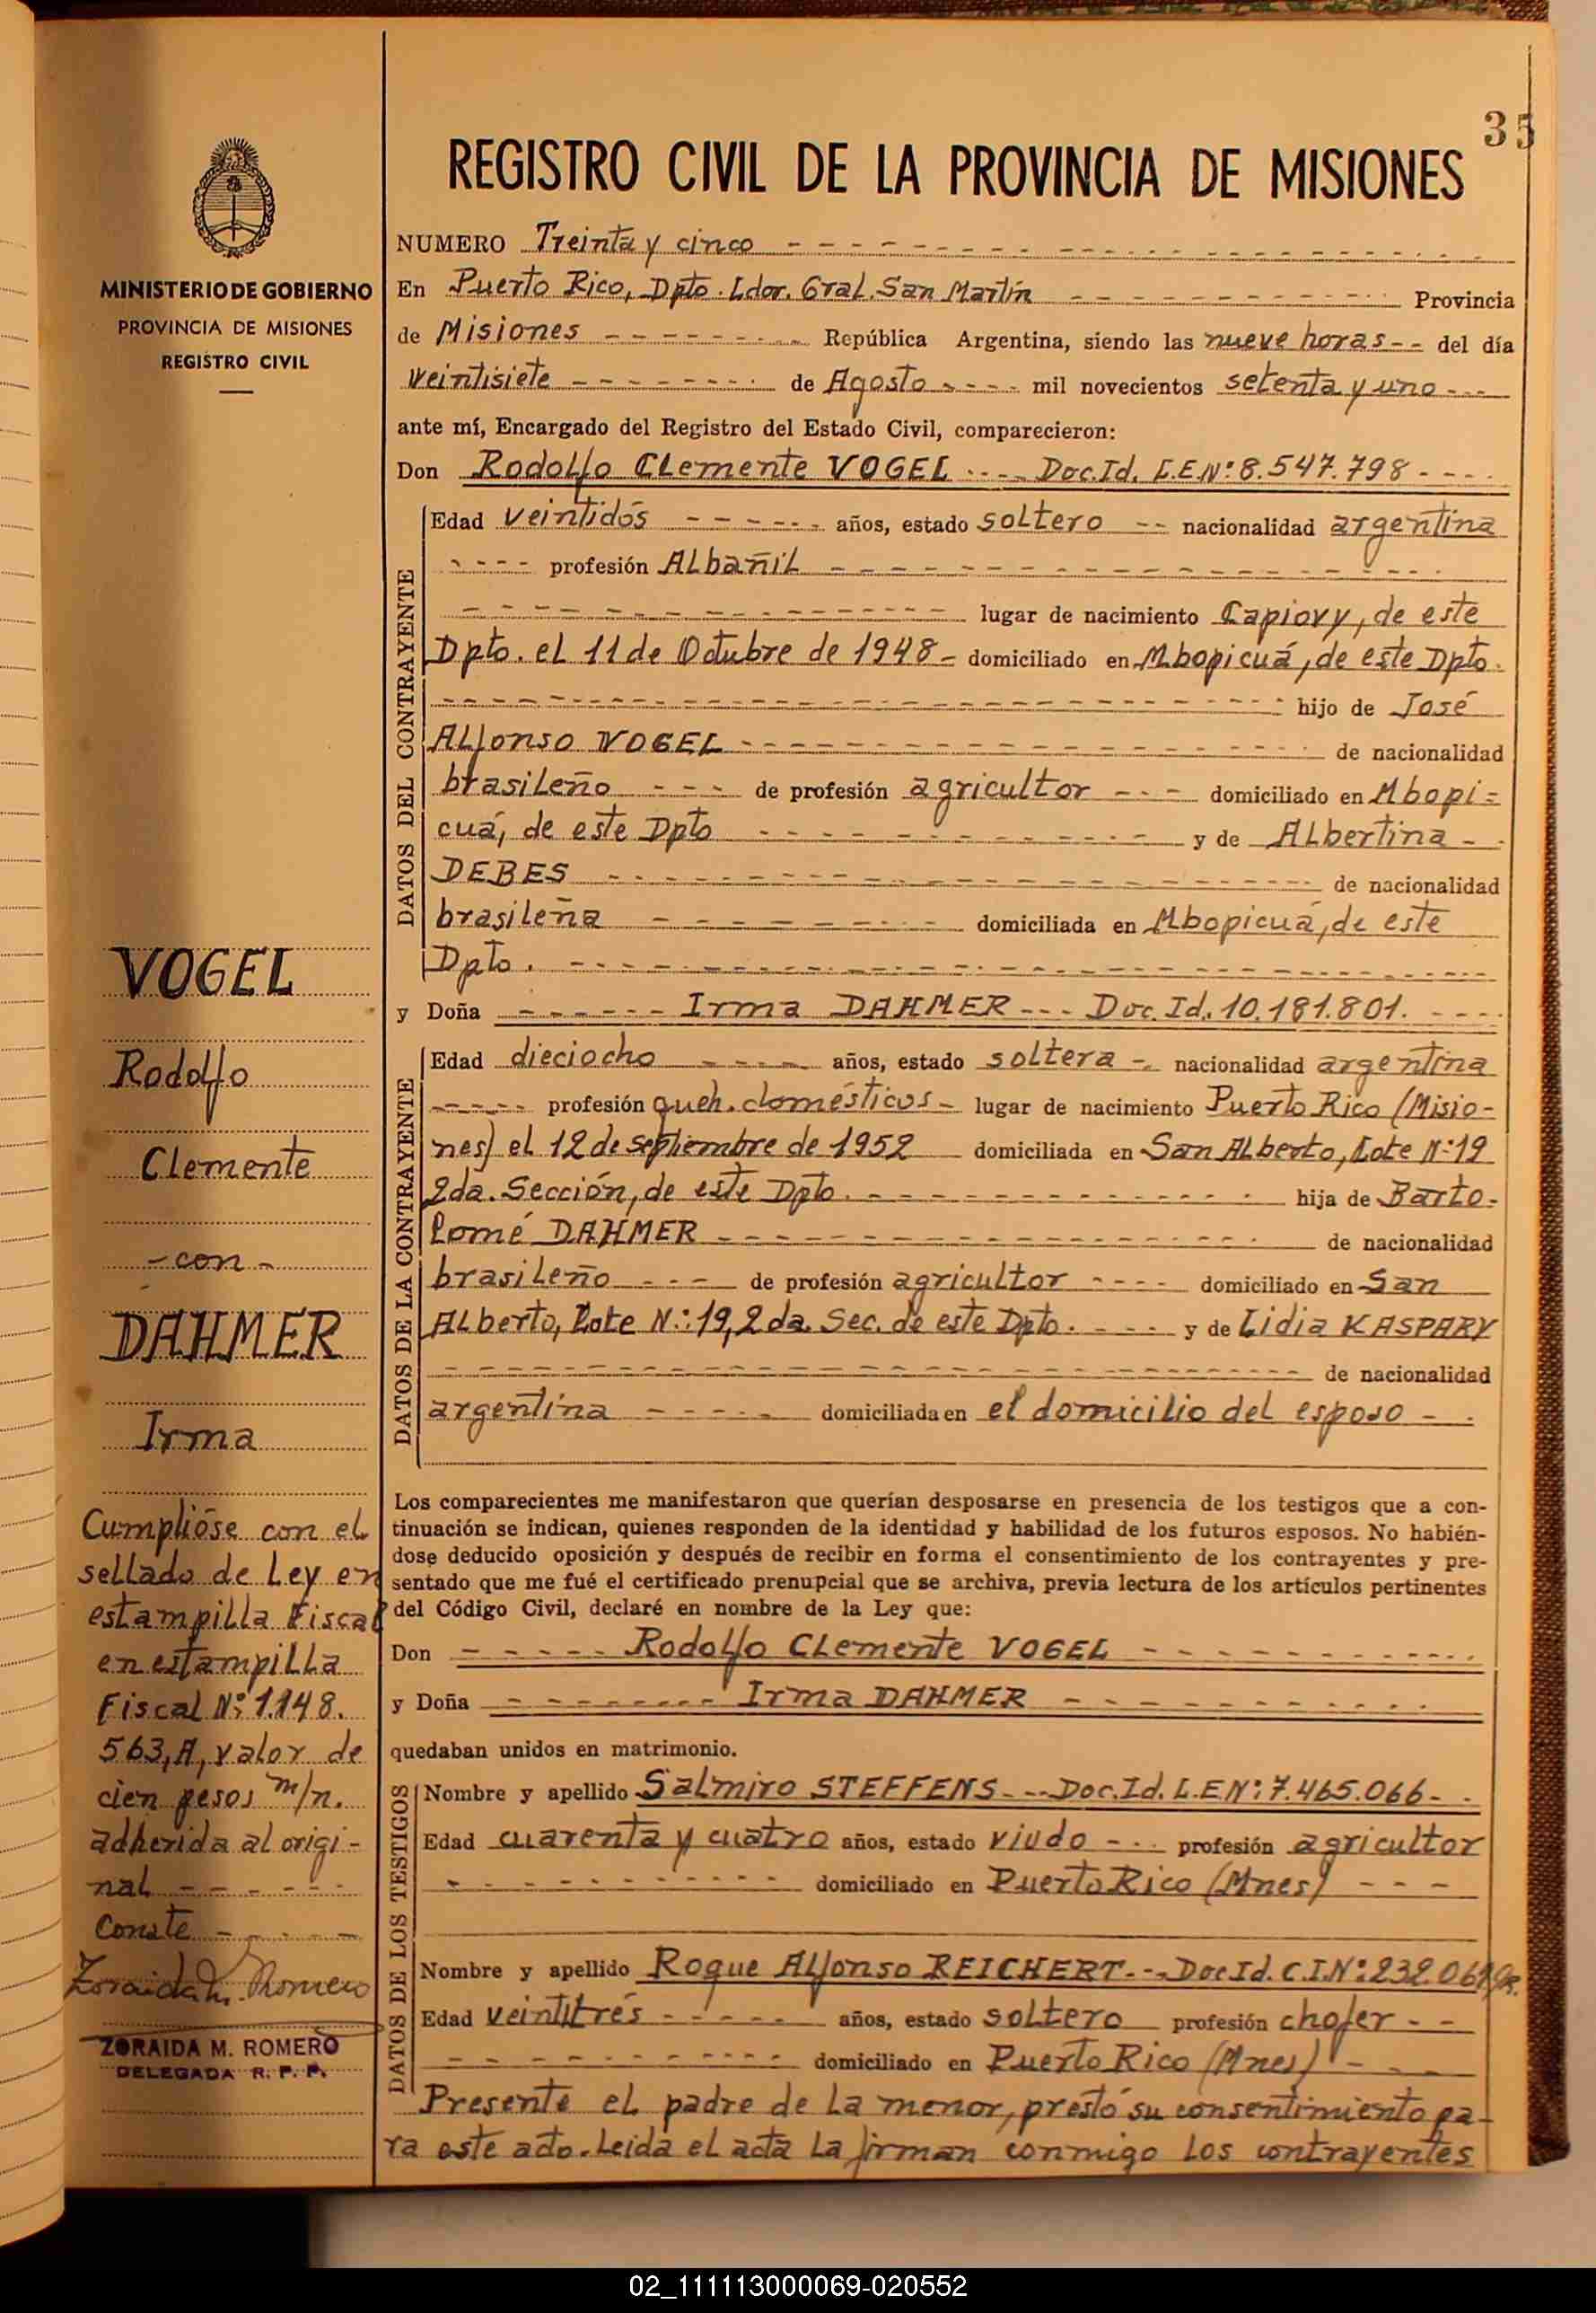 35
REGISTRO CIVIL DE LA PROVINCIA DE MISIONES
MINISTERIO DE GOBIERNO
PROVINCIA DE MISIONES
REGISTRO CIVIL
VOGEL
Rodolfo
Clemente
- con -
DAHMER
Irma
Cumplióse con el
sellado de Ley en
estampilla Fiscal
en estampilla
Fiscal Nº: 1.148.
563, A, valor de
cien pesos m/n.
adherida al origi-
nal - - - - - -
Conste - - - - -
Zoraida M. Romero
ZORAIDA M. ROMERO
DELEGADA R. P. P.
NUMERO Treinta y cinco - - - - - - - -
En Puerto Rico, Dpto. Ldor. Gral. San Martín - - - - - - - - Provincia
de Misiones - - - - - - - República Argentina, siendo las nueve horas - - del día
veintisiete - - - - - - - de Agosto - - - - mil novecientos setenta y uno - - -
ante mí, Encargado del Registro del Estado Civil, comparecieron:
Don Rodolfo CLemente VOGEL - - - - Doc. Id. L.E Nº: 8.547.798 - - - -
DATOS DEL CONTRAYENTE
Edad veintidós - - - - - - años, estado soltero - - nacionalidad argentina
- - - - profesión ALbañil - - - - - - - -
- - - - - - - - lugar de nacimiento Capiovy, de este
Dpto. el 11 de Octubre de 1948 - domiciliado en Mbopicuá, de este Dpto.
- - - - - - - - hijo de José
ALfonso VOGEL - - - - - - - - de nacionalidad
brasileño - - - de profesión agricultor - - - domiciliado en Mbopi=
cuá, de este Dpto - - - - - - - - y de ALbertina - -
DEBES - - - - - - - - de nacionalidad
brasileña - - - - - - - - domiciliada en Mbopicuá, de este
Dpto. - - - - - - - -
y Doña - - - - - - Irma DAHMER - - - Doc. Id. 10.181.801. - - - -
DATOS DE LA CONTRAYENTE
Edad dieciocho - - - - - años, estado soltera - - nacionalidad argentina
- - - - - profesión queh. domésticos - lugar de nacimiento Puerto Rico (Misio-
nes) el 12 de septiembre de 1952 domiciliada en San ALberto, Lote Nº: 19
2da. Sección, de este Dpto. - - - - - - - - hija de Barto-
lomé DAHMER - - - - - - - - de nacionalidad
brasileño - - - de profesión agricultor - - - - domiciliado en San
ALberto, Lote Nº: 19, 2da. Sec. de este Dpto. - - - - y de Lidia KASPARY
- - - - - - - - de nacionalidad
argentina - - - - - domiciliada en el domicilio del esposo - -
Los comparecientes me manifestaron que querían desposarse en presencia de los testigos que a con-
tinuación se indican, quienes responden de la identidad y habilidad de los futuros esposos. No habién-
dose deducido oposición y después de recibir en forma el consentimiento de los contrayentes y pre-
sentado que me fué el certificado prenupcial que se archiva, previa lectura de los artículos pertinentes
del Código Civil, declaré en nombre de la Ley que:
Don - - - - - Rodolfo CLemente VOGEL - - - - - - - -
y Doña - - - - - - - - Irma DAHMER - - - - - - - -
quedaban unidos en matrimonio.
DATOS DE LOS TESTIGOS
Nombre y apellido Salmiro STEFFENS - - - Doc. Id. L.E Nº: 7.465.066 - -
Edad cuarenta y cuatro años, estado viudo - - - profesión agricultor
- - - - - - - - domiciliado en Puerto Rico (Mnes) - - -
Nombre y apellido Roque ALfonso REICHERT - - - Doc Id. C.I. Nº: 232.061
Edad veintitrés - - - - - años, estado soltero profesión chofer - -
- - - - - - - - domiciliado en Puerto Rico (Mnes) - - -
Presente el padre de la menor, prestó su consentimiento pa-
ra este acto. Leída el acta la firman conmigo los contrayentes
02_111113000069-020552